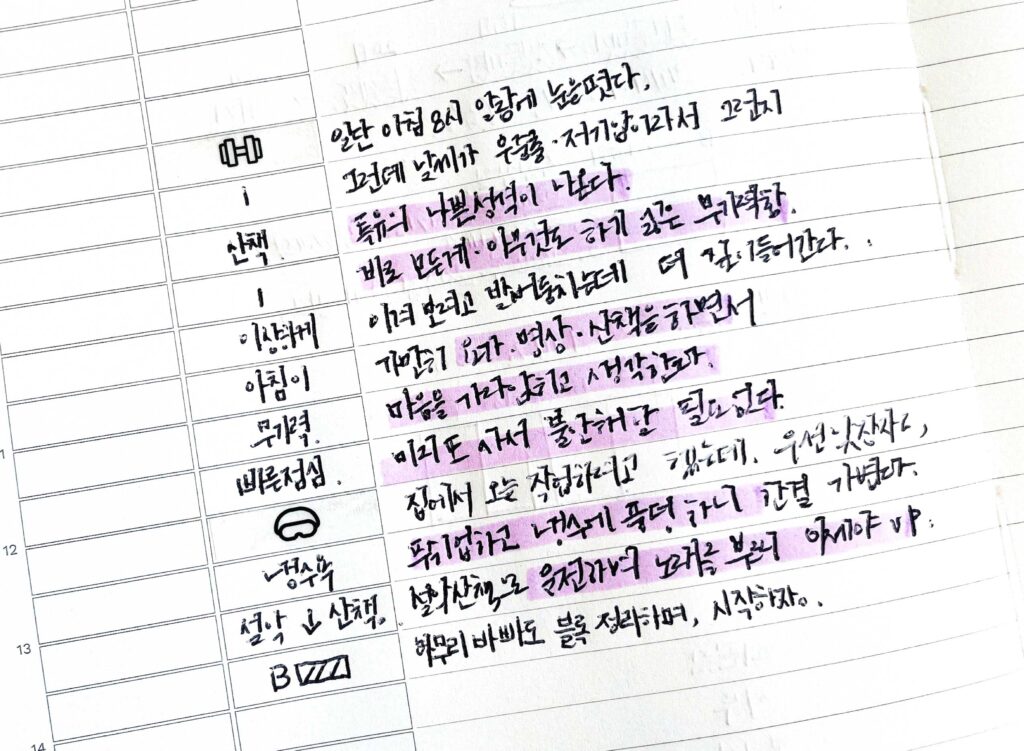 일단 아침 8시 알람에 눈을 떴다.
그런데 날씨가 우글쭈·저기압이라서 그런지
산책
특유의 나쁜성격이 나온다.
바로 모든게·아무것도 하기 싫은 무기력함.
이상하게
이겨 보려고 발버둥치는데 더 깊이 들어간다..
아침이
가만히 요가·명상·산책을 하면서
무기력.
마음을 가라앉히고 생각한다.
빠른점심.
미리도 사서 불안해할 필요없다.
집에서 오늘 작업하려고 했는데, 우선 낮잠자고,
12
냉수욕
하고 냉수에 풍덩 하니 한결 가볍다.
설악 ↓ 산책.
설악산책으로 운전하며 노래를 부르니 이제야 UP.
13
B
아무리 바빠도 블록 정리하며, 시작하자.
14